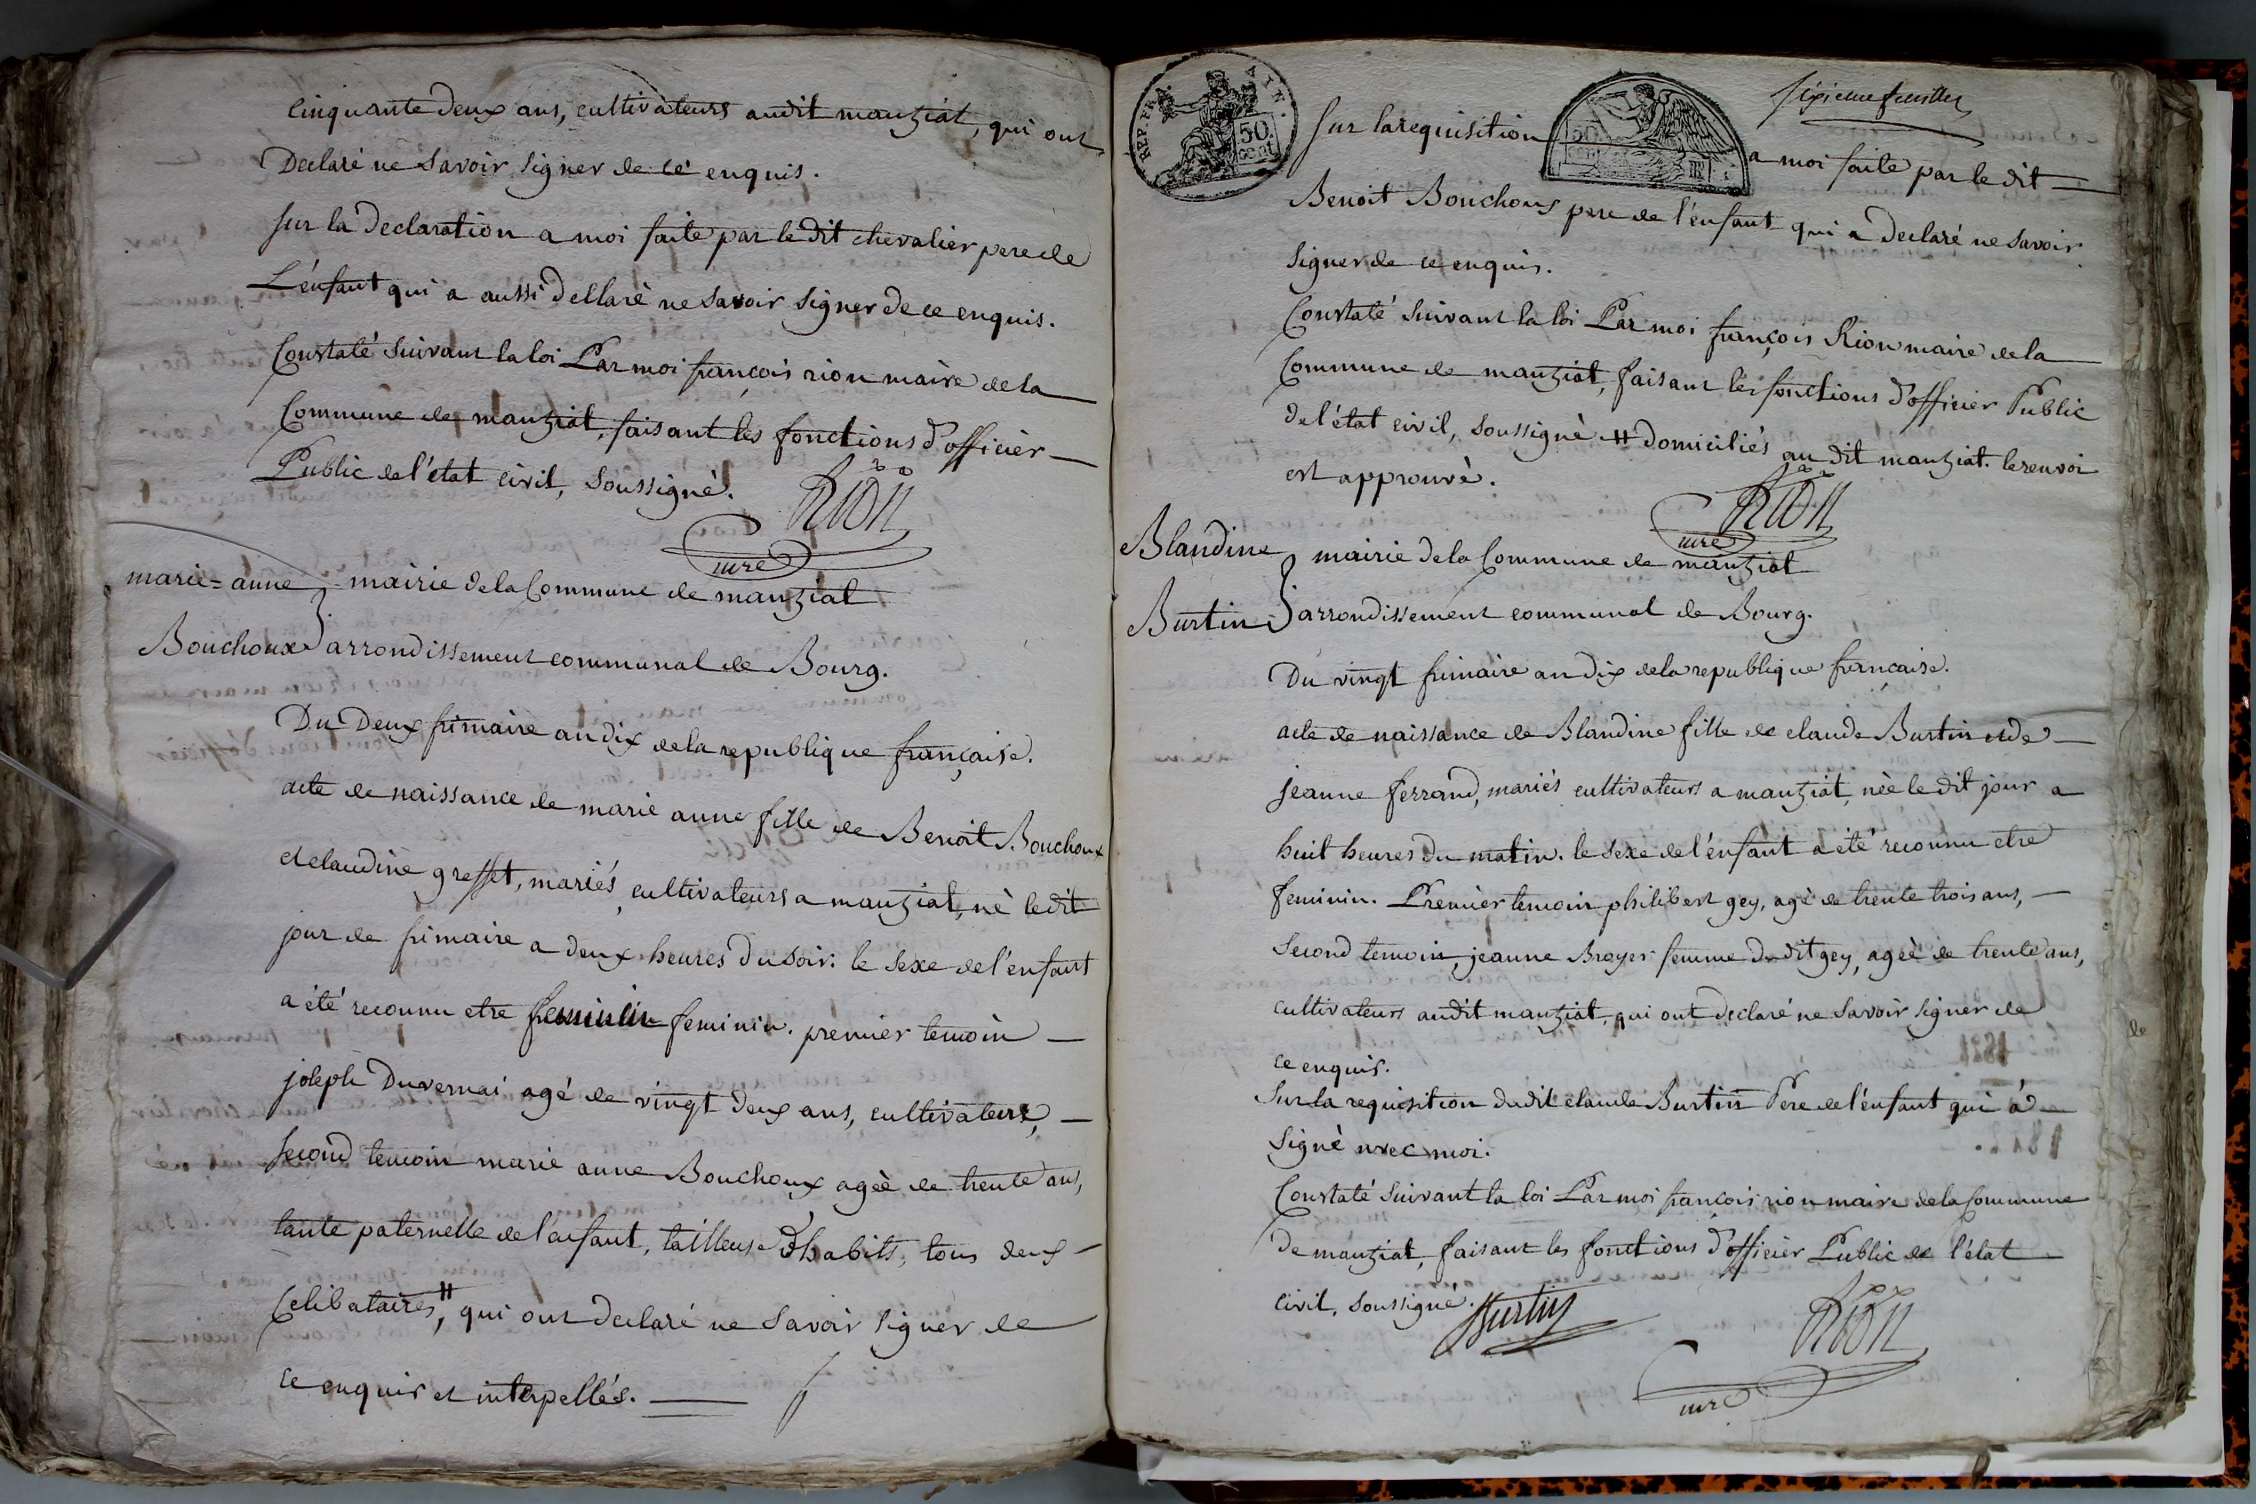 cinquante deux ans, cultivateurs audit manziat, qui ont
Declaré ne Savoir Signer de ce enquis.
Sur la Declaration a moi faite par le dit chevalier pere de
L'énfant qui a aussi dellarè ne Savoir Signer de ce enquis.
Constaté Suivant la loi Par moi françois rion maire de la
Commune de manziat, faisant les fonctions d'officier
Public de l'état civil, Soussigné.
RION
mre
marie=anne
Bouchoux
mairie de la Commune de manziat
arrondissement communal de Bourg.
Du Deux frimaire an dix de la republique française.
acte de naissance de marie anne fille de Benoit Bouchoux
et claudine greffet, mariés, cultivateurs a manziat, nè le dit
jour de frimaire a deux heures du soir: le sexe de l'enfant
a été reconnu etre feminin feminin. premier temoin
joseph Duvernai agé de vingt deux ans, cultivateur,
second temoin marie anne Bouchoux agèè de trente ans,
tante paternelle de l'énfant, tailleuse d'habits, tous deux
Celibataires #, qui ont declaré ne Savoir Signer de
ce enquis et interpellés.
REP. FRA. AIN.
50. cent
50. cent
sixieme feuillet
Sur la requisition a moi faite par le dit
Benoit Bouchoux pere de l'énfant qui a declaré ne savoir
signer de ce enquis.
Constaté Suivant la loi Par moi françois Rion maire de la
Commune de manziat, faisant les fonctions d'officier Public
de l'état civil, soussignè # domiciliés au dit manziat. le renvoi
est approuvè.
RION
mre
Blandine
Burtin
mairie de la Commune de manziat
arrondissement communal de Bourg.
Du vingt frimaire an dix de la republique française.
acte de naissance de Blandine fille de claude Burtin et de
jeanne ferrand, mariés cultivateurs a manziat, nèe le dit jour a
huit heures du matin. le sexe de l'énfant a été reconnu etre
feminin. Premier temoin philibert gey, agé de trente trois ans,
Second temoin, jeanne Broyer femme du dit gey, agèè de trente ans,
cultivateurs audit manziat, qui ont declaré ne Savoir Signer de
ce enquis.
Sur la requisition dudit claude Burtin Pere de l'énfant qui a
Signè avec moi.
Constaté Suivant la loi Par moi françois rion maire de la Commune
De manziat, faisant les fonctions d'officier Public de l'état
civil, soussigné.
Burtin
RION
mre